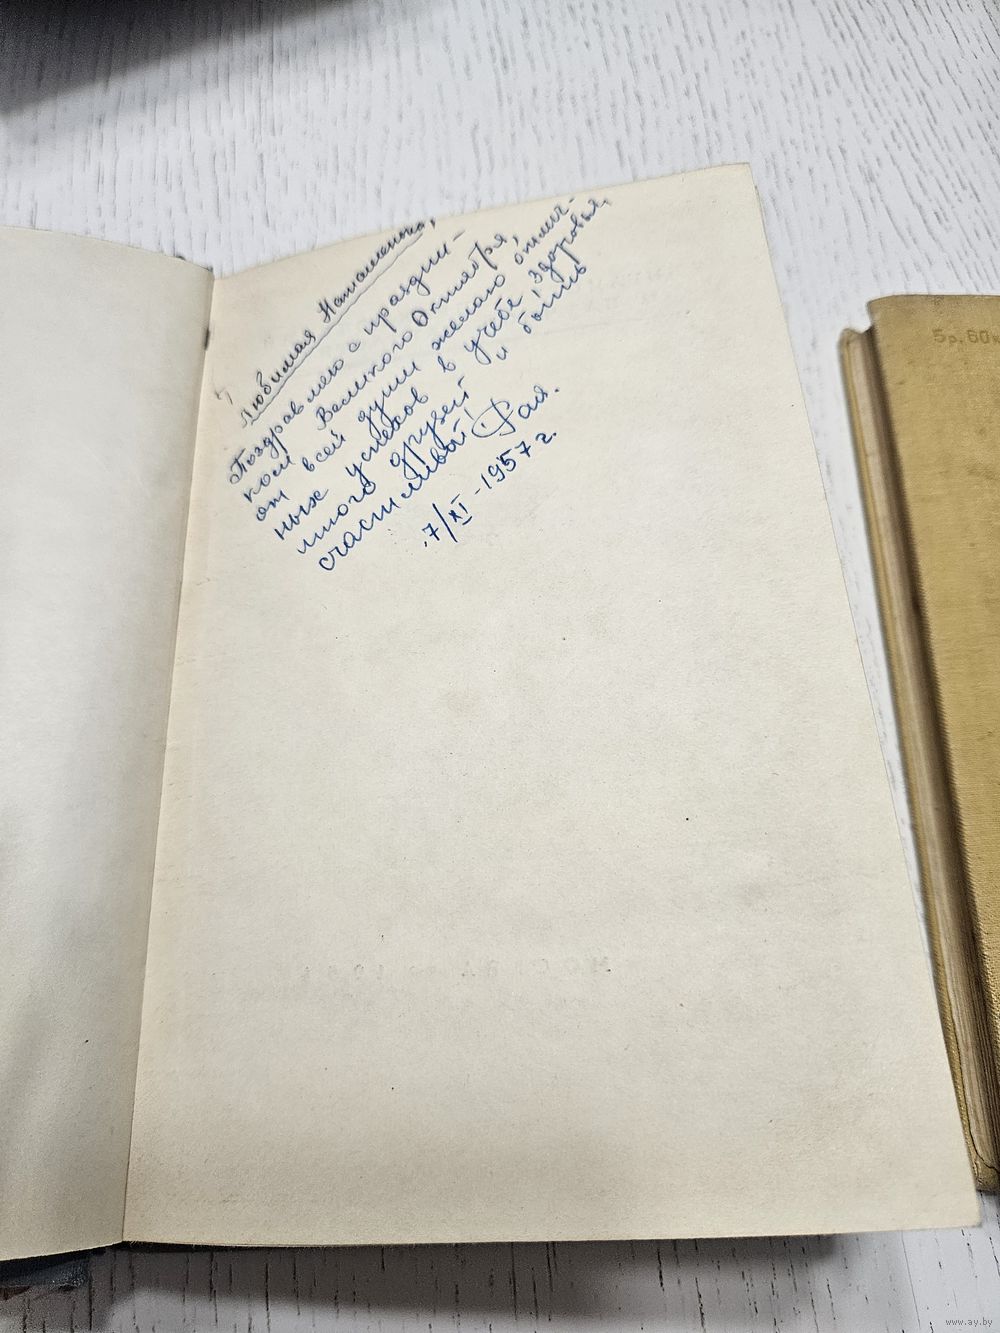 Любимая Наташенька,
Поздравляю с праздни-
ком Великого Октября,
от всей души желаю отлич-
ных успехов в учебе, здоровья,
много друзей и быть
счастливой! Фая.
7/XI-1957 г.
5р. 60к
www.ay.by